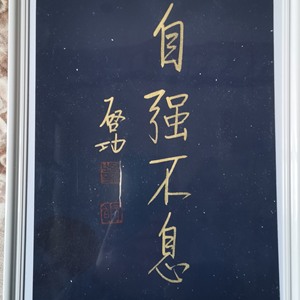 自强不息
启功